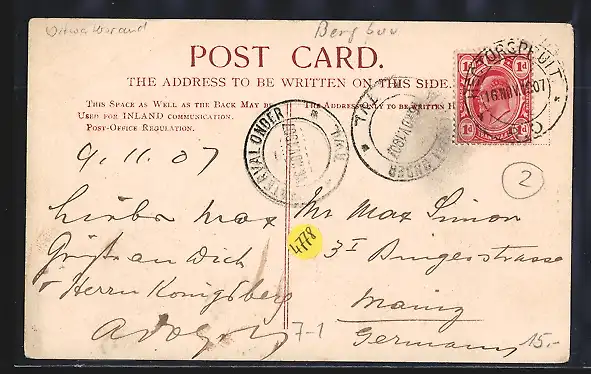 Witwatersrand
Bergbau
POST CARD.
THE ADDRESS TO BE WRITTEN ON THIS SIDE.
THIS SPACE AS WELL AS THE BACK MAY BE
USED FOR INLAND COMMUNICATION.
POST-OFFICE REGULATION.
THE ADDRESS ONLY TO BE WRITTEN H
1d 1d
HECTORSPRUIT
16 NOV 1907
WATERVAL ONDER
TAD
9.11.07
Lieber Max
Grüße an Dich
Herrn Königsberg
Adolf
4778
2
Mr Max Simon
3 I Bingerstrasse
Mainz
Germany
7-1
15.-